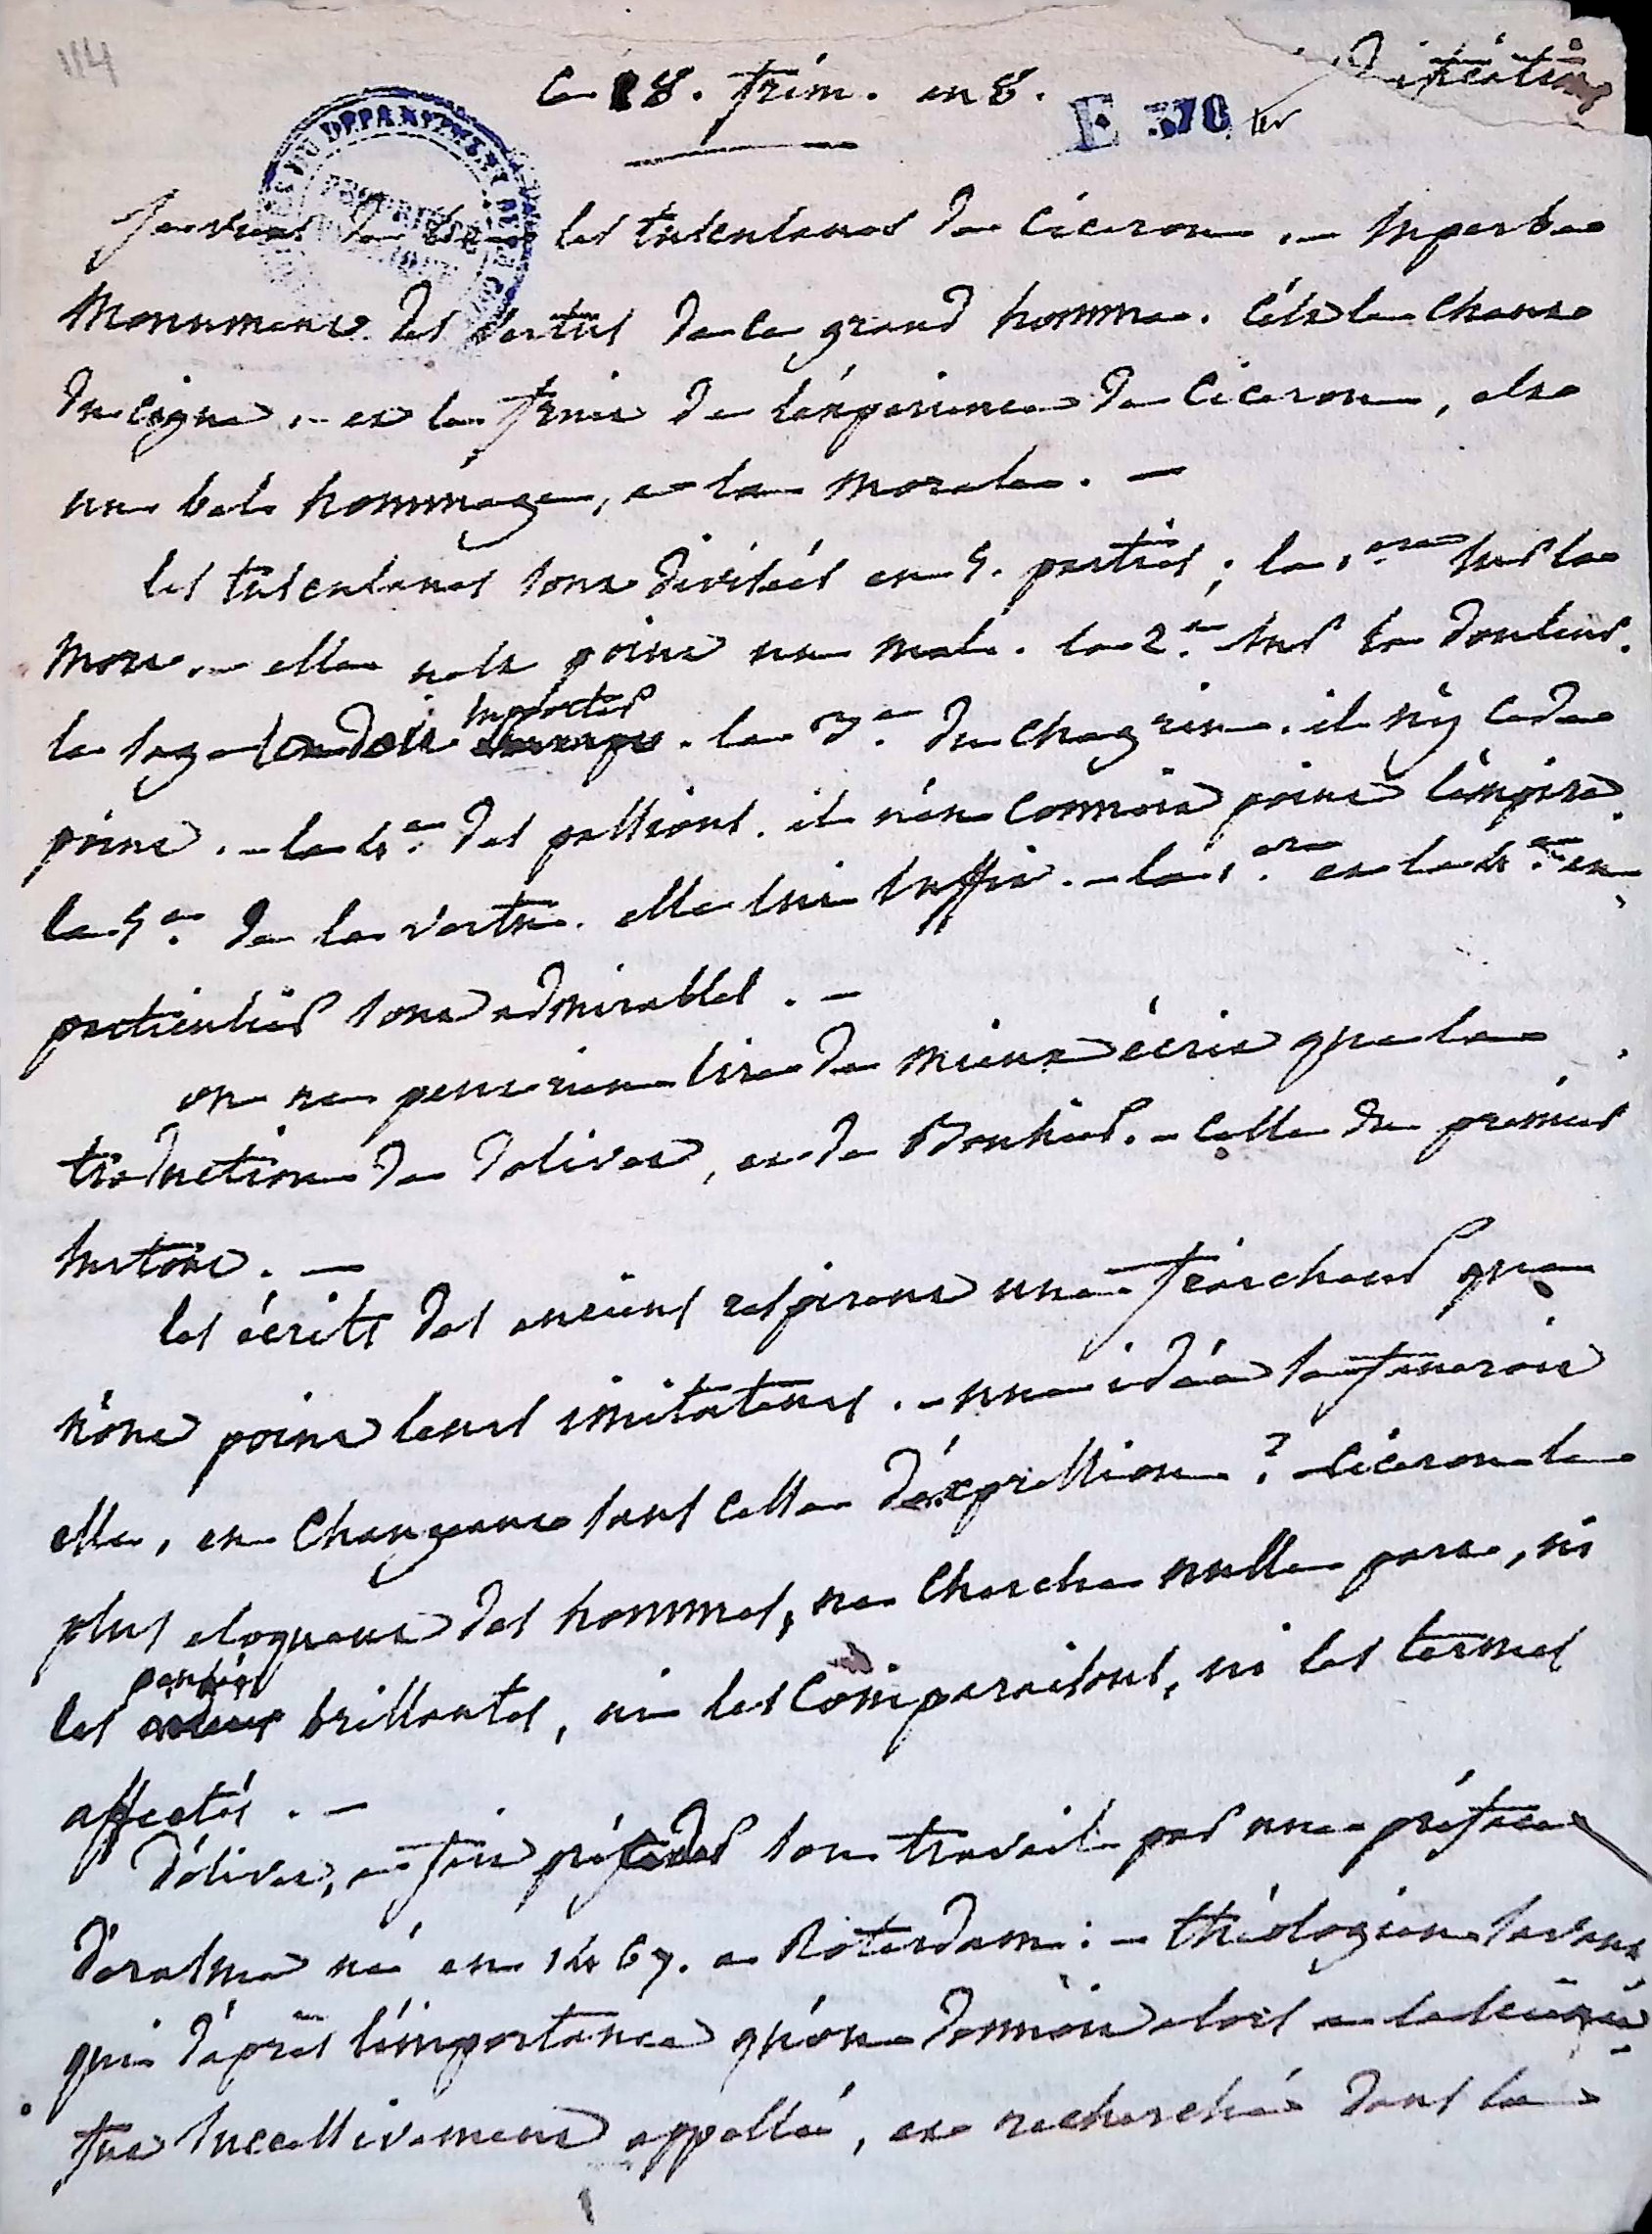 114
Ce 18. frim. an 8.
E 378 ter
Je viens de lire les tusculanes de Ciceron. — superbe
monument des vertus de ce grand homme. c'est le chant
du cigne. — et le fruit de l'expérience de Ciceron, est
un bel hommage, a la morale. —
les tusculanes sont divisées en 5. parties ; la 1.ere sur la
mort. — elle n'est point un mal. la 2.e sur la douleur.
le sage la doit supporter. la 3.e du chagrin. il n'y cede
point. — la 4.e des passions. il n'en connoit point l'empire.
la 5.e de la vertu. elle lui suffit. — la 1.ere et la 4.e en
particulier sont admirables. —
on ne peut rien lire de mieux écrit que la
traduction de dolivet, et de Bouhier. — celle du premier
surtout. —
les écrits des anciens respirent une fraicheur que
n'ont point leurs imitateurs. — une idée se faneroit
elle, en changeant sans cesse d'expression ? — Ciceron le
plus eloquent des hommes, ne cherche nulle part, ni
les pensées brillantes, ni les comparaisons, ni les termes
affectés. —
d'olivet, a fait précéder son travail par une préface
d'erasme né en 1467. a Roterdam : — théologien savant
qui d'après l'importance qu'on donnoit alors a la science
fut successivement appellé, et recherché dans la